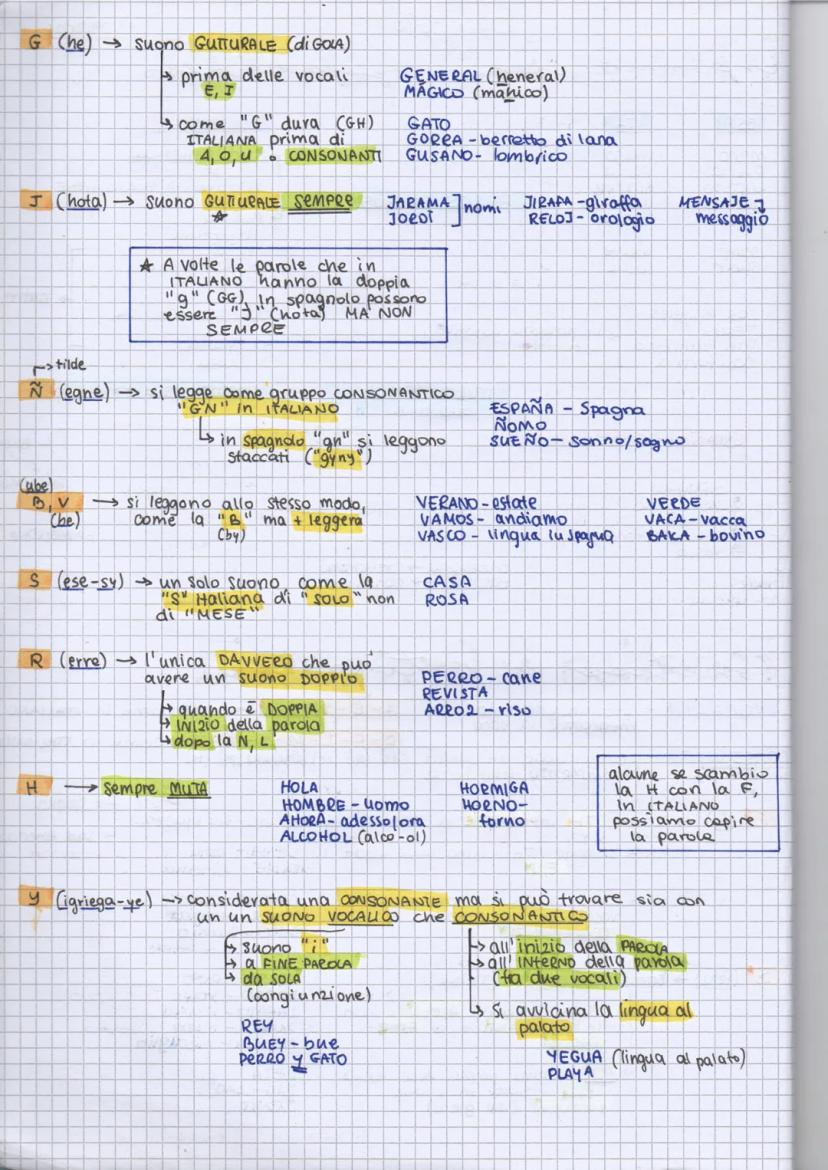 G (he) → suono GUTTURALE (di GOLA)
↳ prima delle vocali E, I
GENERAL (heneral)
MÁGICO (mahico)
↳ come "G" dura (GH)
ITALIANA prima di
A, O, U o CONSONANTI
GATO
GORRA - berretto di lana
GUSANO - lombrico
J (hota) → suono GUTTURALE SEMPRE
★
JARAMA
JORDI ] nomi
JIRAFA - giraffa
RELOJ - orologio
MENSAJE →
messaggio
★ A volte le parole che in
ITALIANO hanno la doppia
"g" (GG), in spagnolo possono
essere "J" (hota) MA NON
SEMPRE
↱ tilde
Ñ (egne) → si legge come gruppo CONSONANTICO
"GN" in ITALIANO
↳ in spagnolo "gn" si leggono
staccati ("gyny")
ESPAÑA - Spagna
ÑOMO
SUEÑO - sonno/sogno
(ube)
B, V → si leggono allo stesso modo,
(be) come la "B" ma + leggera
(by)
VERANO - estate
VAMOS - andiamo
VASCO - lingua in Spagna
VERDE
VACA - vacca
BAKA - bovino
S (ese-sy) → un solo suono, come la
"S" italiana di "SOLO" non
di "MESE"
CASA
ROSA
R (erre) → l'unica DAVVERO che può
avere un suono DOPPIO
↳ quando è DOPPIA
↳ INIZIO della parola
↳ dopo la N, L
PERRO - cane
REVISTA
ARROZ - riso
H → sempre MUTA
HOLA
HOMBRE - uomo
AHORA - adesso/ora
ALCOHOL (alco-ol)
HORMIGA
HORNO -
forno
alcune se scambio
la H con la F,
in ITALIANO
possiamo capire
la parola
Y (igriega-ye) → considerata una CONSONANTE ma si può trovare sia con
un un SUONO VOCALICO che CONSONANTICO
↳ suono "i"
↳ a FINE PAROLA
↳ da SOLA
(congiunzione)
REY
BUEY - bue
PERRO y GATO
↳ all'inizio della PAROLA
↳ all'INTERNO della parola
(tra due vocali)
↳ si avvicina la lingua al
palato
YEGUA (lingua al palato)
PLAYA